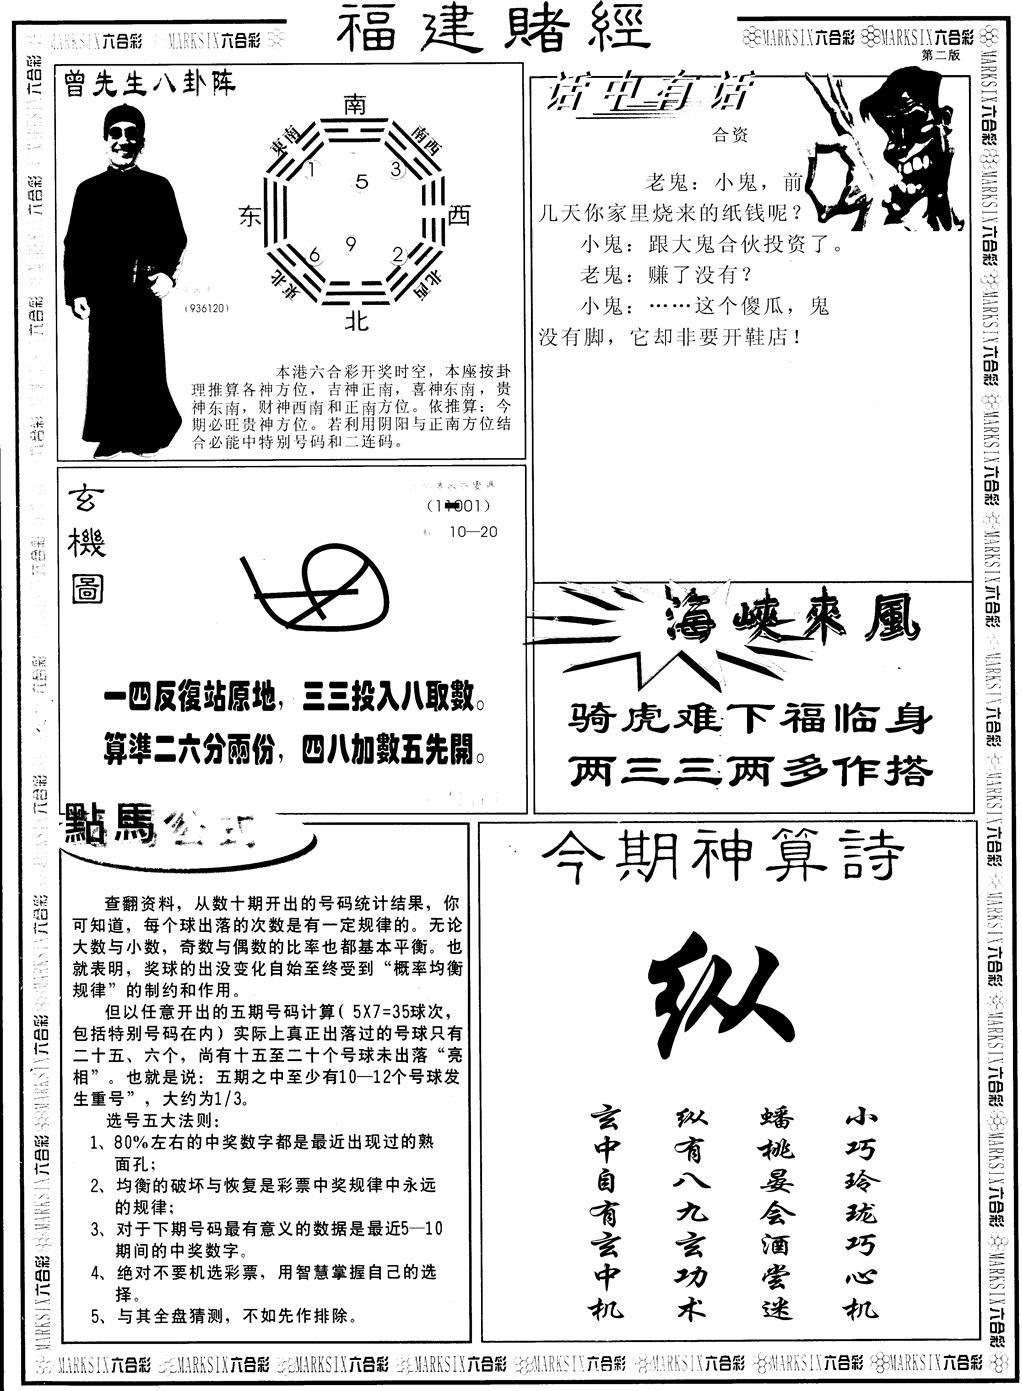 福建賭經
MARKSIX六合彩 MARKSIX六合彩
MARKSIX六合彩 MARKSIX六合彩
第二版
曾先生八卦阵
南
東南
南西
1
5
3
东
西
6
9
2
東北
北西
北
(936120)
本港六合彩开奖时空，本座按卦
理推算各神方位，吉神正南，喜神东南，贵
神东南，财神西南和正南方位。依推算：今
期必旺贵神方位。若利用阴阳与正南方位结
合必能中特别号码和二连码。
话中有话
合资
老鬼：小鬼，前
几天你家里烧来的纸钱呢？
小鬼：跟大鬼合伙投资了。
老鬼：赚了没有？
小鬼：……这个傻瓜，鬼
没有脚，它却非要开鞋店！
玄機圖
10—20
一四反復站原地，三三投入八取數。
算準二六分兩份，四八加數五先開。
海峽來風
骑虎难下福临身
两三三两多作搭
點馬公式
查翻资料，从数十期开出的号码统计结果，你
可知道，每个球出落的次数是有一定规律的。无论
大数与小数，奇数与偶数的比率也都基本平衡。也
就表明，奖球的出没变化自始至终受到“概率均衡
规律”的制约和作用。
但以任意开出的五期号码计算(5X7=35球次，
包括特别号码在内)实际上真正出落过的号球只有
二十五、六个，尚有十五至二十个号球未出落“亮
相”。也就是说：五期之中至少有10—12个号球发
生重号”，大约为1/3。
选号五大法则：
1、80%左右的中奖数字都是最近出现过的熟
面孔；
2、均衡的破坏与恢复是彩票中奖规律中永远
的规律；
3、对于下期号码最有意义的数据是最近5—10
期间的中奖数字。
4、绝对不要机选彩票，用智慧掌握自己的选
择。
5、与其全盘猜测，不如先作排除。
今期神算詩
纵
小巧玲珑巧心机
蟠桃晏会酒尝迷
纵有八九玄功术
玄中自有玄中机
MARKSIX六合彩 MARKSIX六合彩 MARKSIX六合彩 MARKSIX六合彩 MARKSIX六合彩 MARKSIX六合彩 MARKSIX六合彩 MARKSIX六合彩